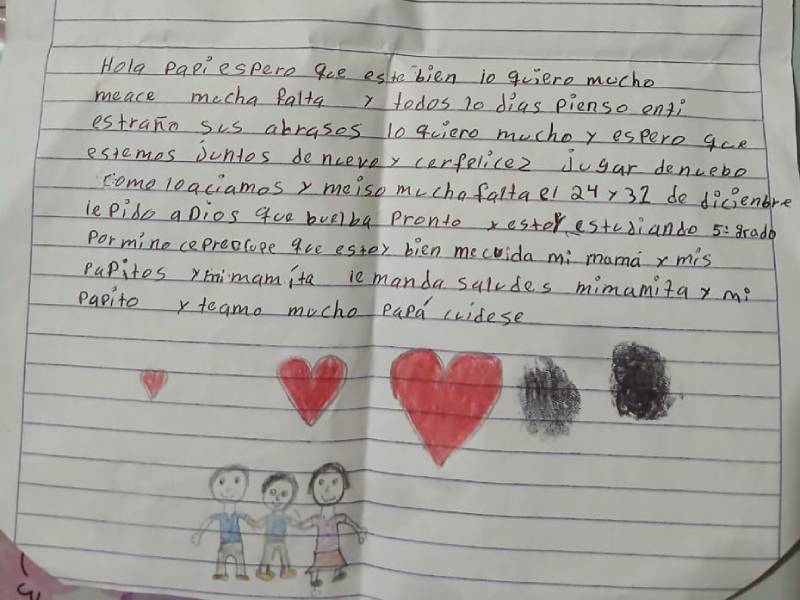 Hola papi espero que este bien lo quiero mucho
meace mucha falta y todos lo dias pienso enti
estraño sus abrasos lo quiero mucho y espero que
estemos juntos de nuevo y cerfelicez jugar denuebo
como loaciamos y meiso mucha falta el 24 y 31 de diciembre
le pido a Dios que buelba pronto y estoy estudiando 5º grado
por mi no ce preocupe que estoy bien me cuida mi mamá y mis
papitos y mi mamíta le manda saludes mi mamita y mi
papíto y teamo mucho papá cuidese